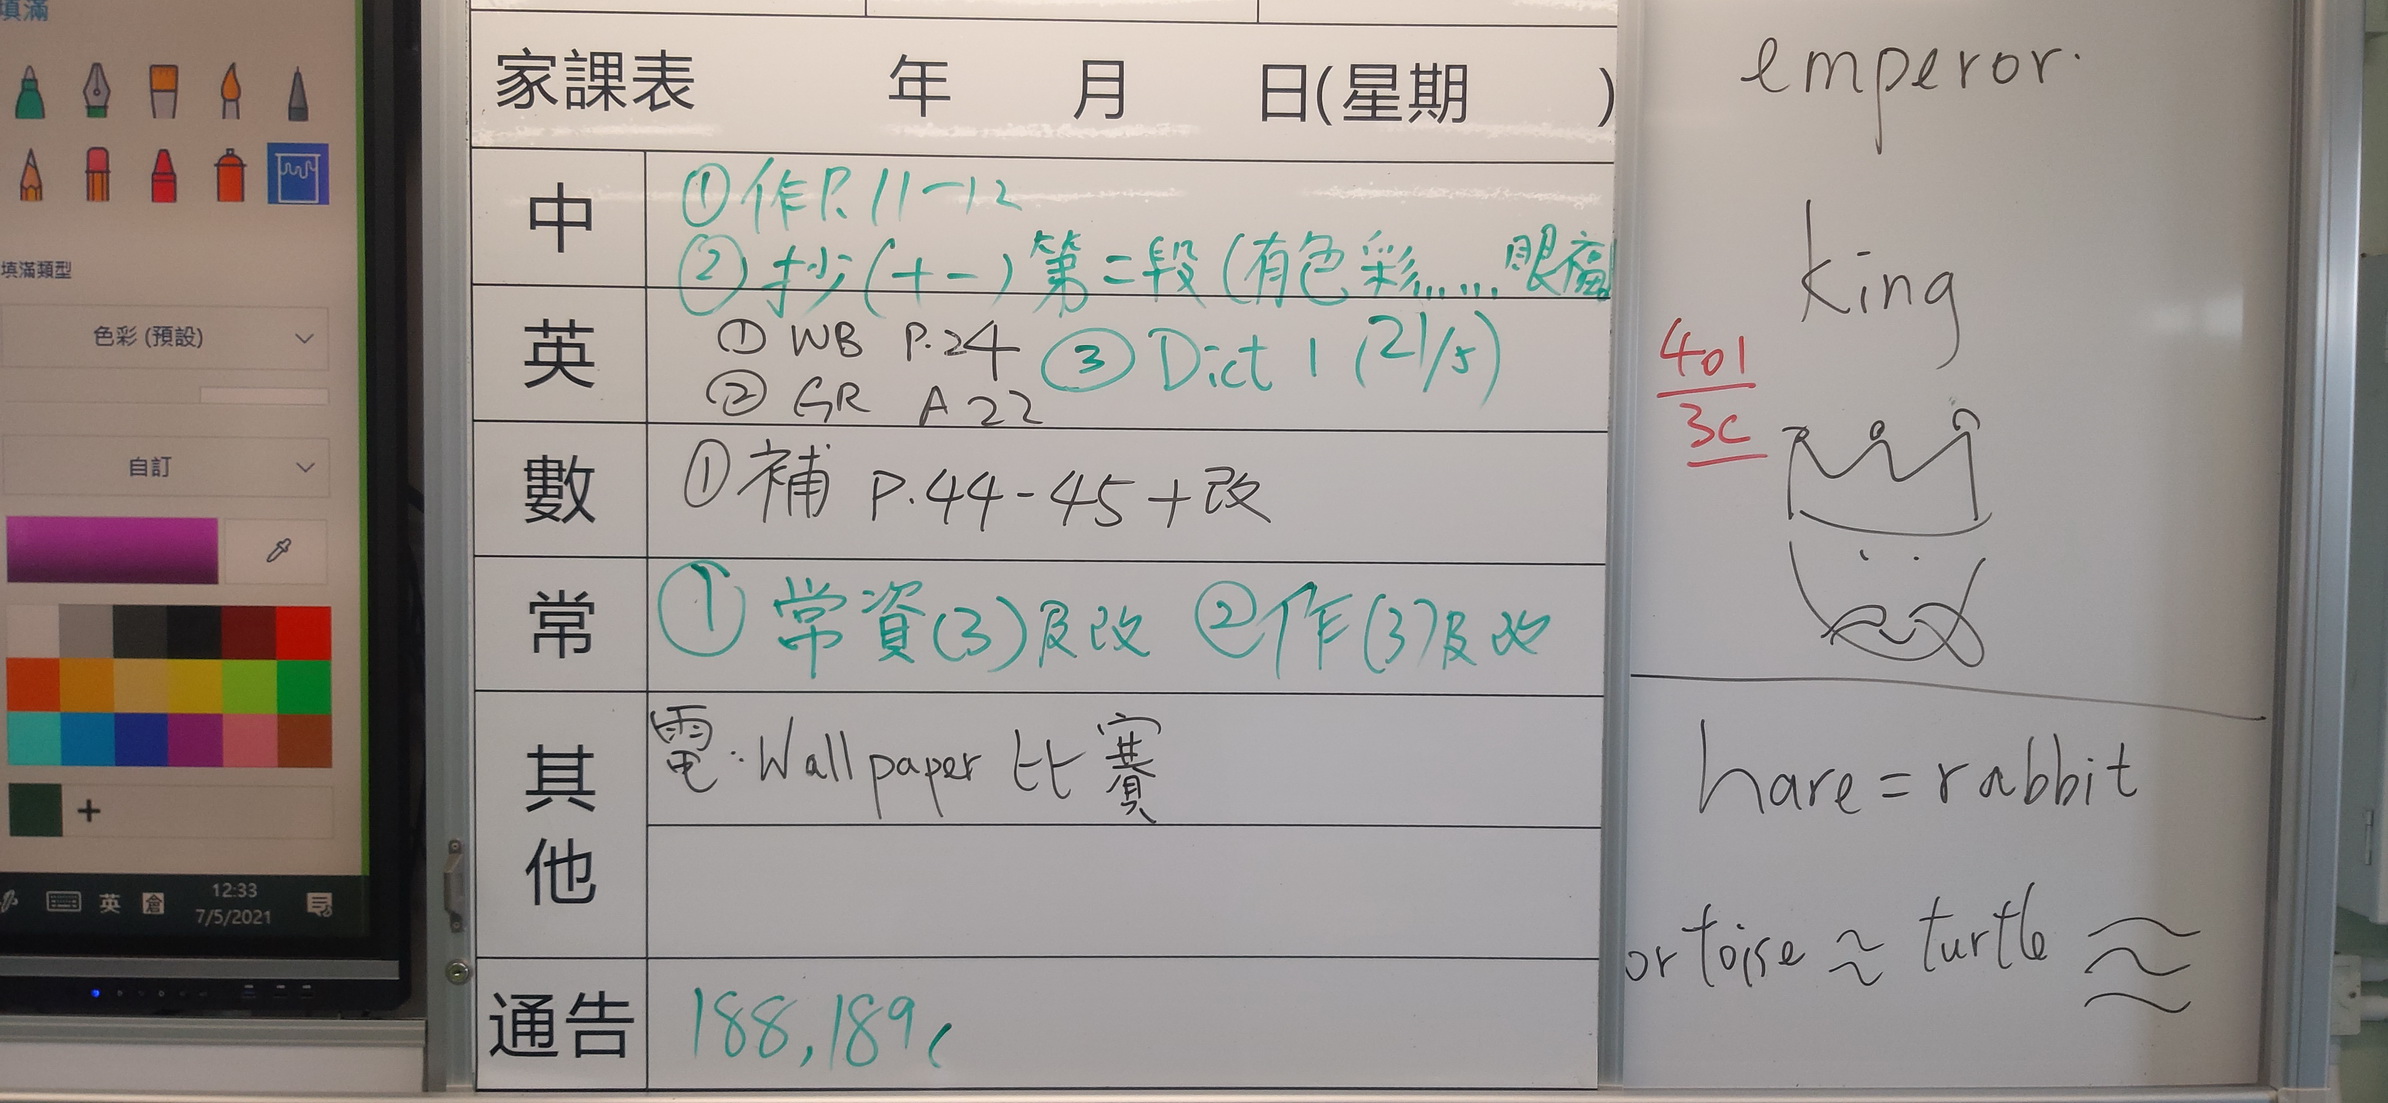 填滿
填滿類型
色彩 (預設)
自訂
+
英 倉
12:33
7/5/2021
家課表 年 月 日(星期 )
中
①作P.11-12
②抄(十一)第二段(有色彩......眼福
英
① WB P.24 ③ Dict 1 (21/5)
② GR A22
數
①補 P.44-45+改
常
①常資(3)及改 ②作(3)及改
其他
電:Wallpaper 比賽
通告
188,189,
emperor.
king
401
3C
hare = rabbit
ortoise ≈ turtle